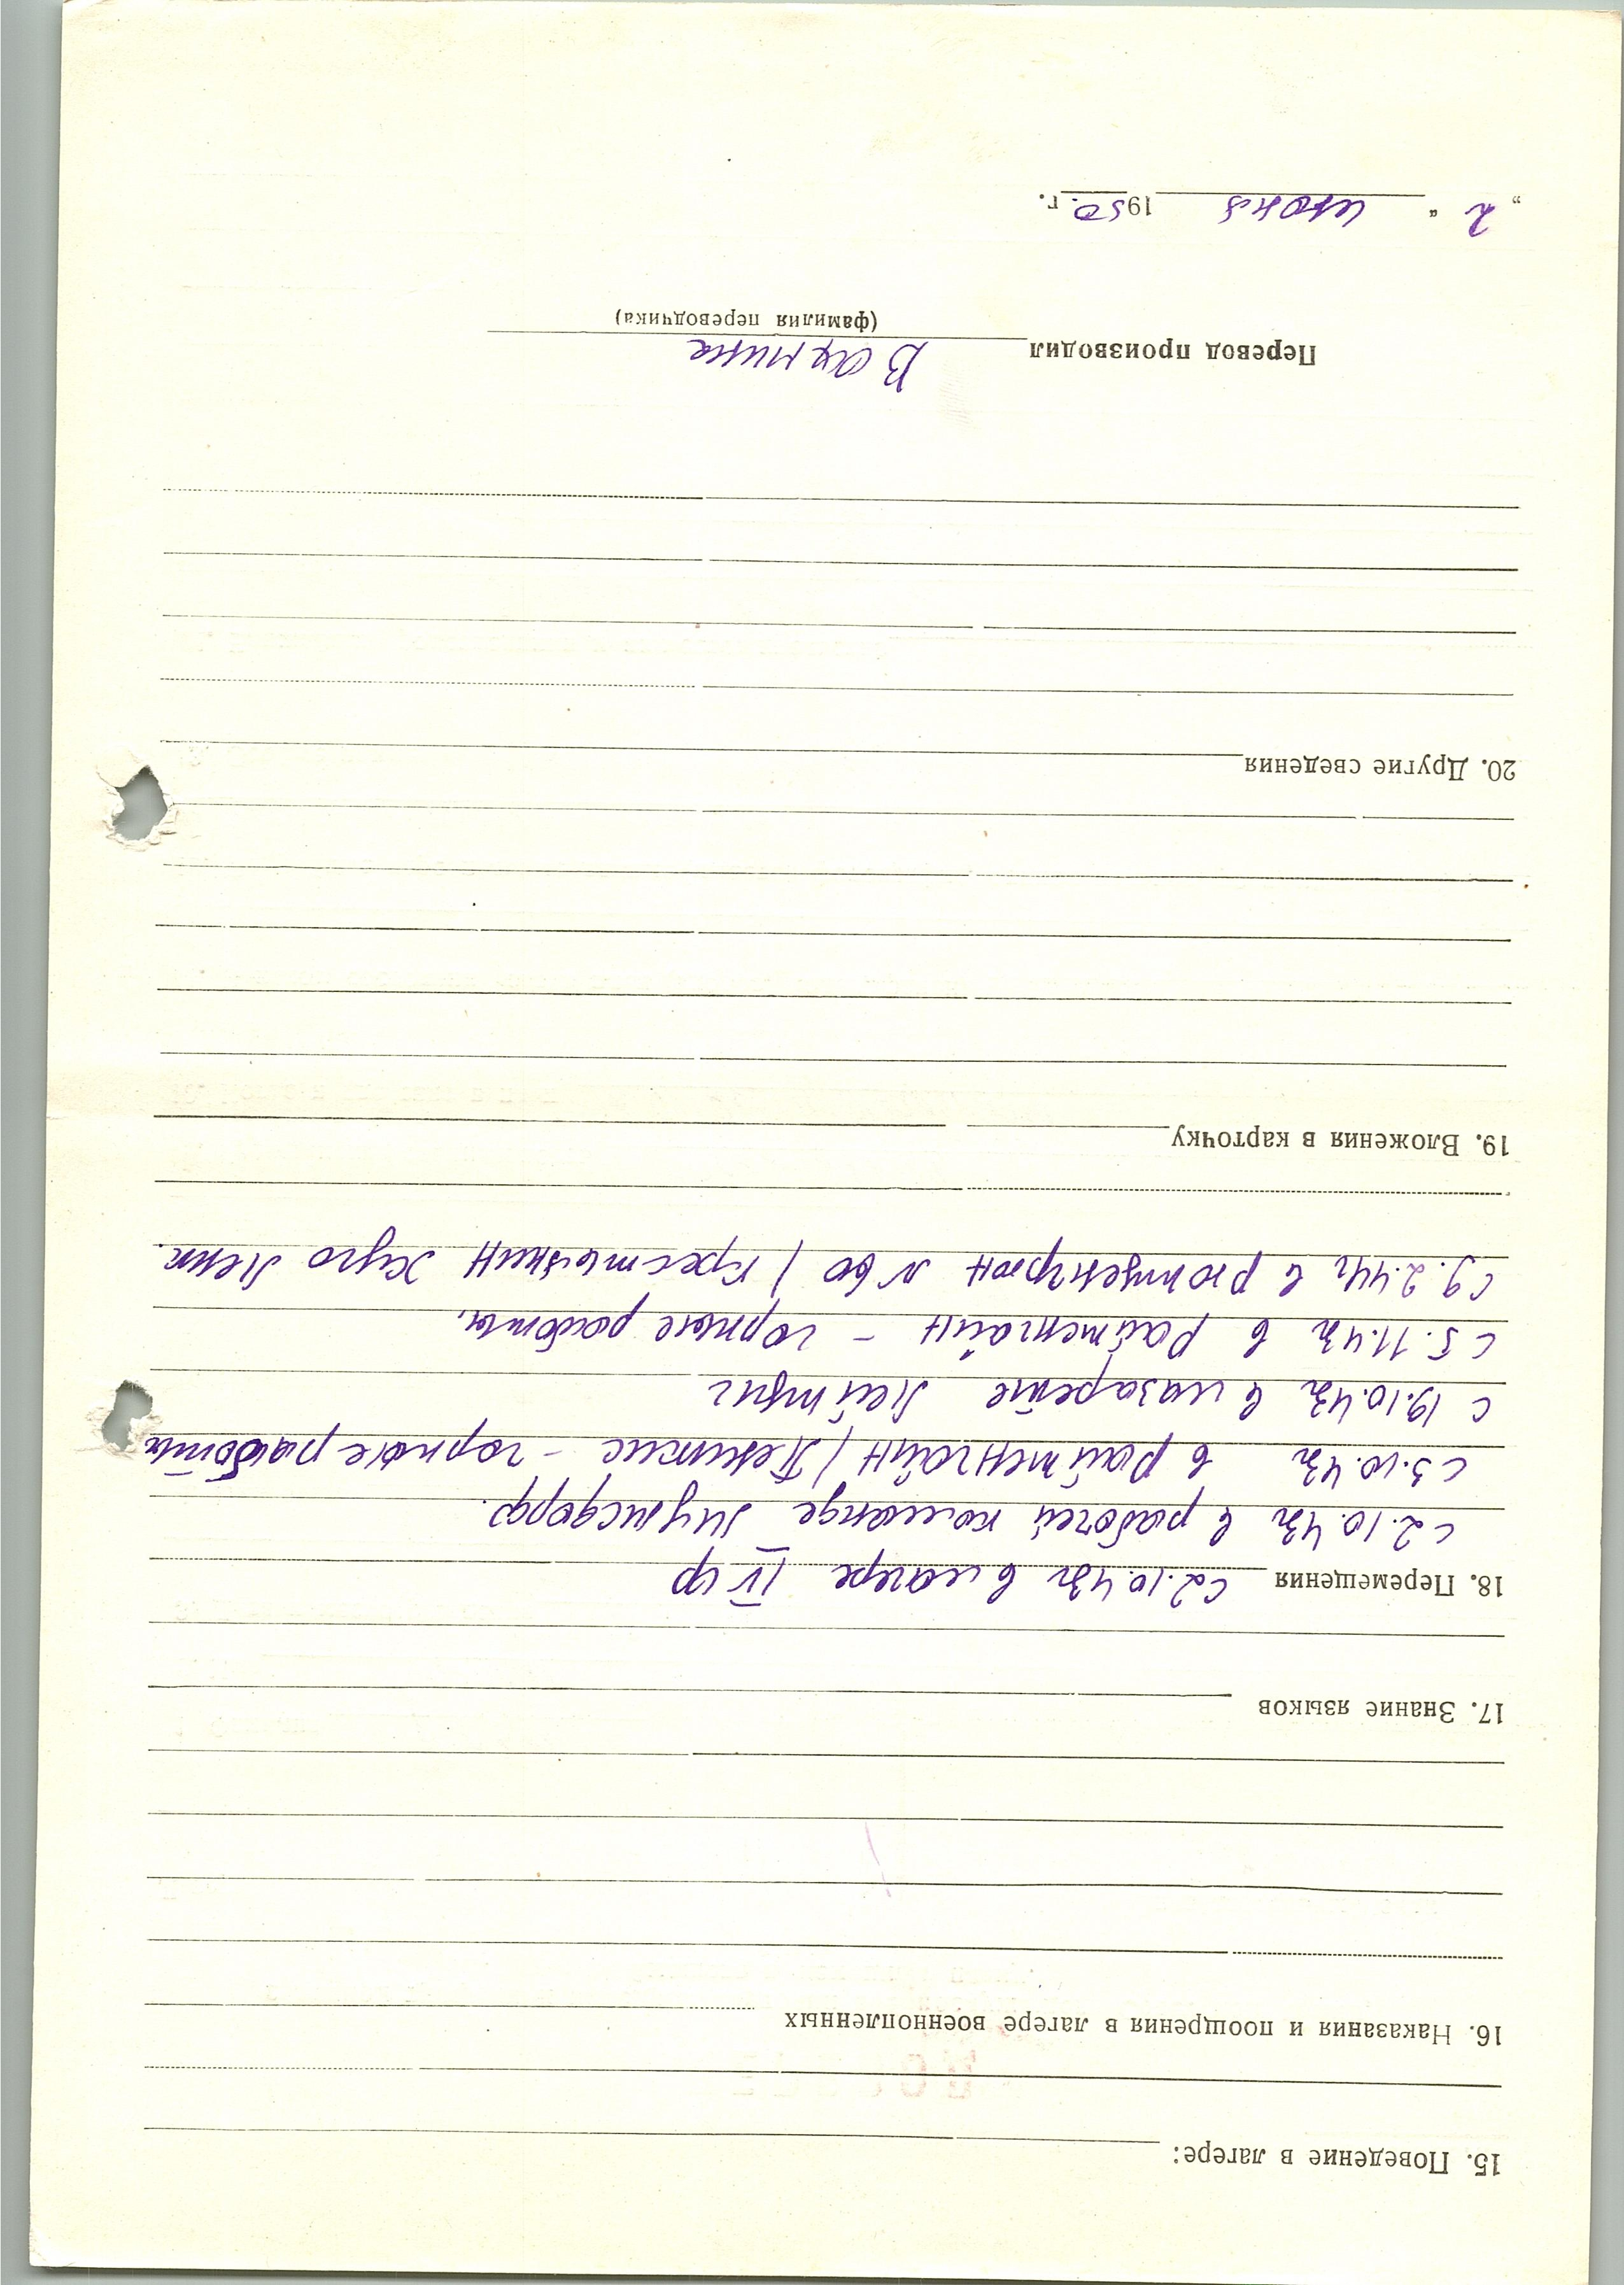 15. Поведение в лагере:
16. Наказания и поощрения в лагере военнопленных
17. Знание языков
18. Перемещения с 2.10.43г в лагере IV ф
с 2.10.43г в рабочей команде
с 3.10.43г в Райтенгайн / – горные работы
с 19.10.43г в лазарете Лейпциг
с 5.11.43г в Райтенгайн – горные работы,
с 9.2.44г в № 60 / крестьянин Хуго
19. Вложения в карточку
20. Другие сведения
Перевод производил
(фамилия переводчика)
„ 2 “ июня 1950 г.